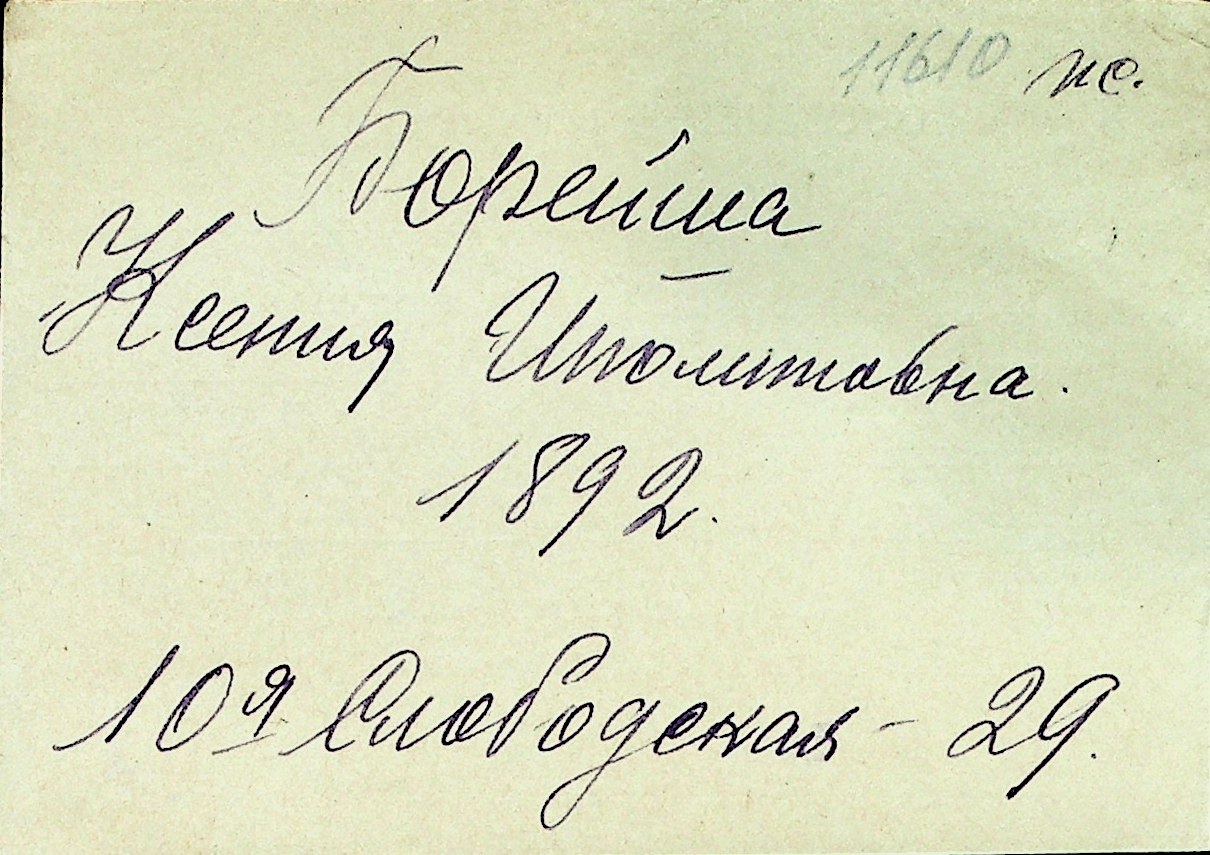 11610 пс.
Борейша
Ксения Иполитовна.
1892.
10я Слободская - 29.